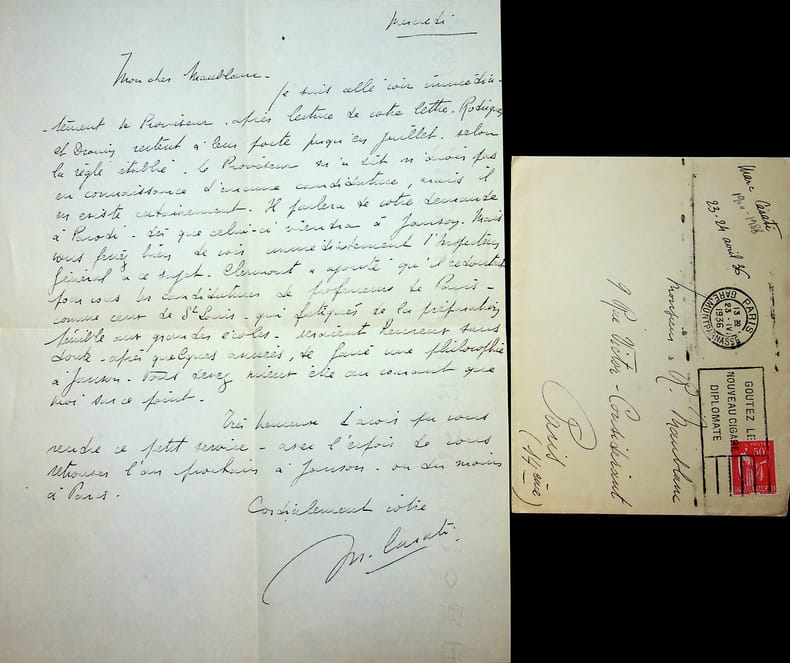 Mercredi
Mon cher Maublanc -
Je suis allé voir immédia-
-tement le Proviseur. après lecture de votre lettre. Rodrigues
et Drouin restent à leur poste jusqu'en juillet. selon
la règle établie. Le Proviseur m'a dit n'avoir pas
eu connaissance d'aucune candidature, mais il
en existe certainement. Il parlera de votre demande
à Parodi - dès que celui-ci viendra à Janson. Mais
vous ferez bien de voir immédiatement l'Inspecteur
Général à ce sujet. Clermont a ajouté qu'il redoutait
pour vous les candidatures de professeurs de Paris -
comme ceux de St Louis - qui fatigués de la préparation
pénible aux grandes écoles - seraient heureux sans
doute - après quelques années, de faire une philosophie
à Janson. Vous devez mieux être au courant que
moi sur ce point.
Très heureux d'avoir pu vous
rendre ce petit service - avec l'espoir de vous
retrouver l'an prochain à Janson - ou du moins
à Paris.
Cordialement vôtre
M. Casati.
Marc Casati
23-24 avril 36
PARIS
GARE MONTPARNASSE
13 H
23 - IV
1936
GOUTEZ LE
NOUVEAU CIGARE
DIPLOMATE
50
Monsieur R. Maublanc
9 Rue Victor-Considérant
Paris
(14ème)